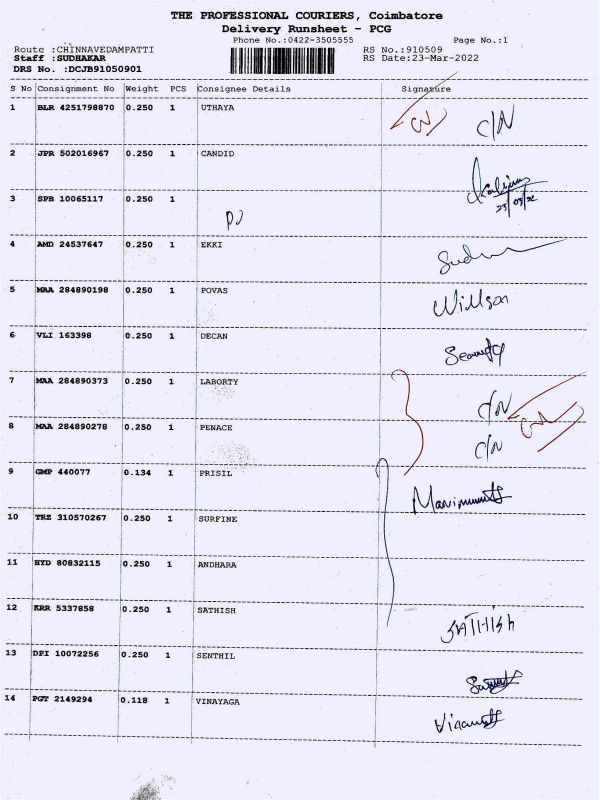 THE PROFESSIONAL COURIERS, Coimbatore
Delivery Runsheet - PCG
Phone No.:0422-3505555 Page No.:1
Route :CHINNAVEDAMPATTI RS No.:910509
Staff :SUDHAKAR RS Date:23-Mar-2022
DRS No. :DCJB91050901
S No Consignment No Weight PCS Consignee Details Signature
1 BLR 4251798870 0.250 1 UTHAYA C/N
2 JPR 502016967 0.250 1 CANDID
23/03/22
3 SPB 10065117 0.250 1
4 AMD 24537647 0.250 1 EKKI
5 MAA 284890198 0.250 1 POVAS Willson
6 VLI 163398 0.250 1 DECAN
7 MAA 284890373 0.250 1 LABORTY C/N
8 MAA 284890278 0.250 1 PENACE C/N
9 GMP 440077 0.134 1 PRISIL
10 TRZ 310570267 0.250 1 SURFINE
11 HYD 80832115 0.250 1 ANDHARA
12 KRR 5337858 0.250 1 SATHISH SATHISH
13 DPI 10072256 0.250 1 SENTHIL
14 PGT 2149294 0.118 1 VINAYAGA